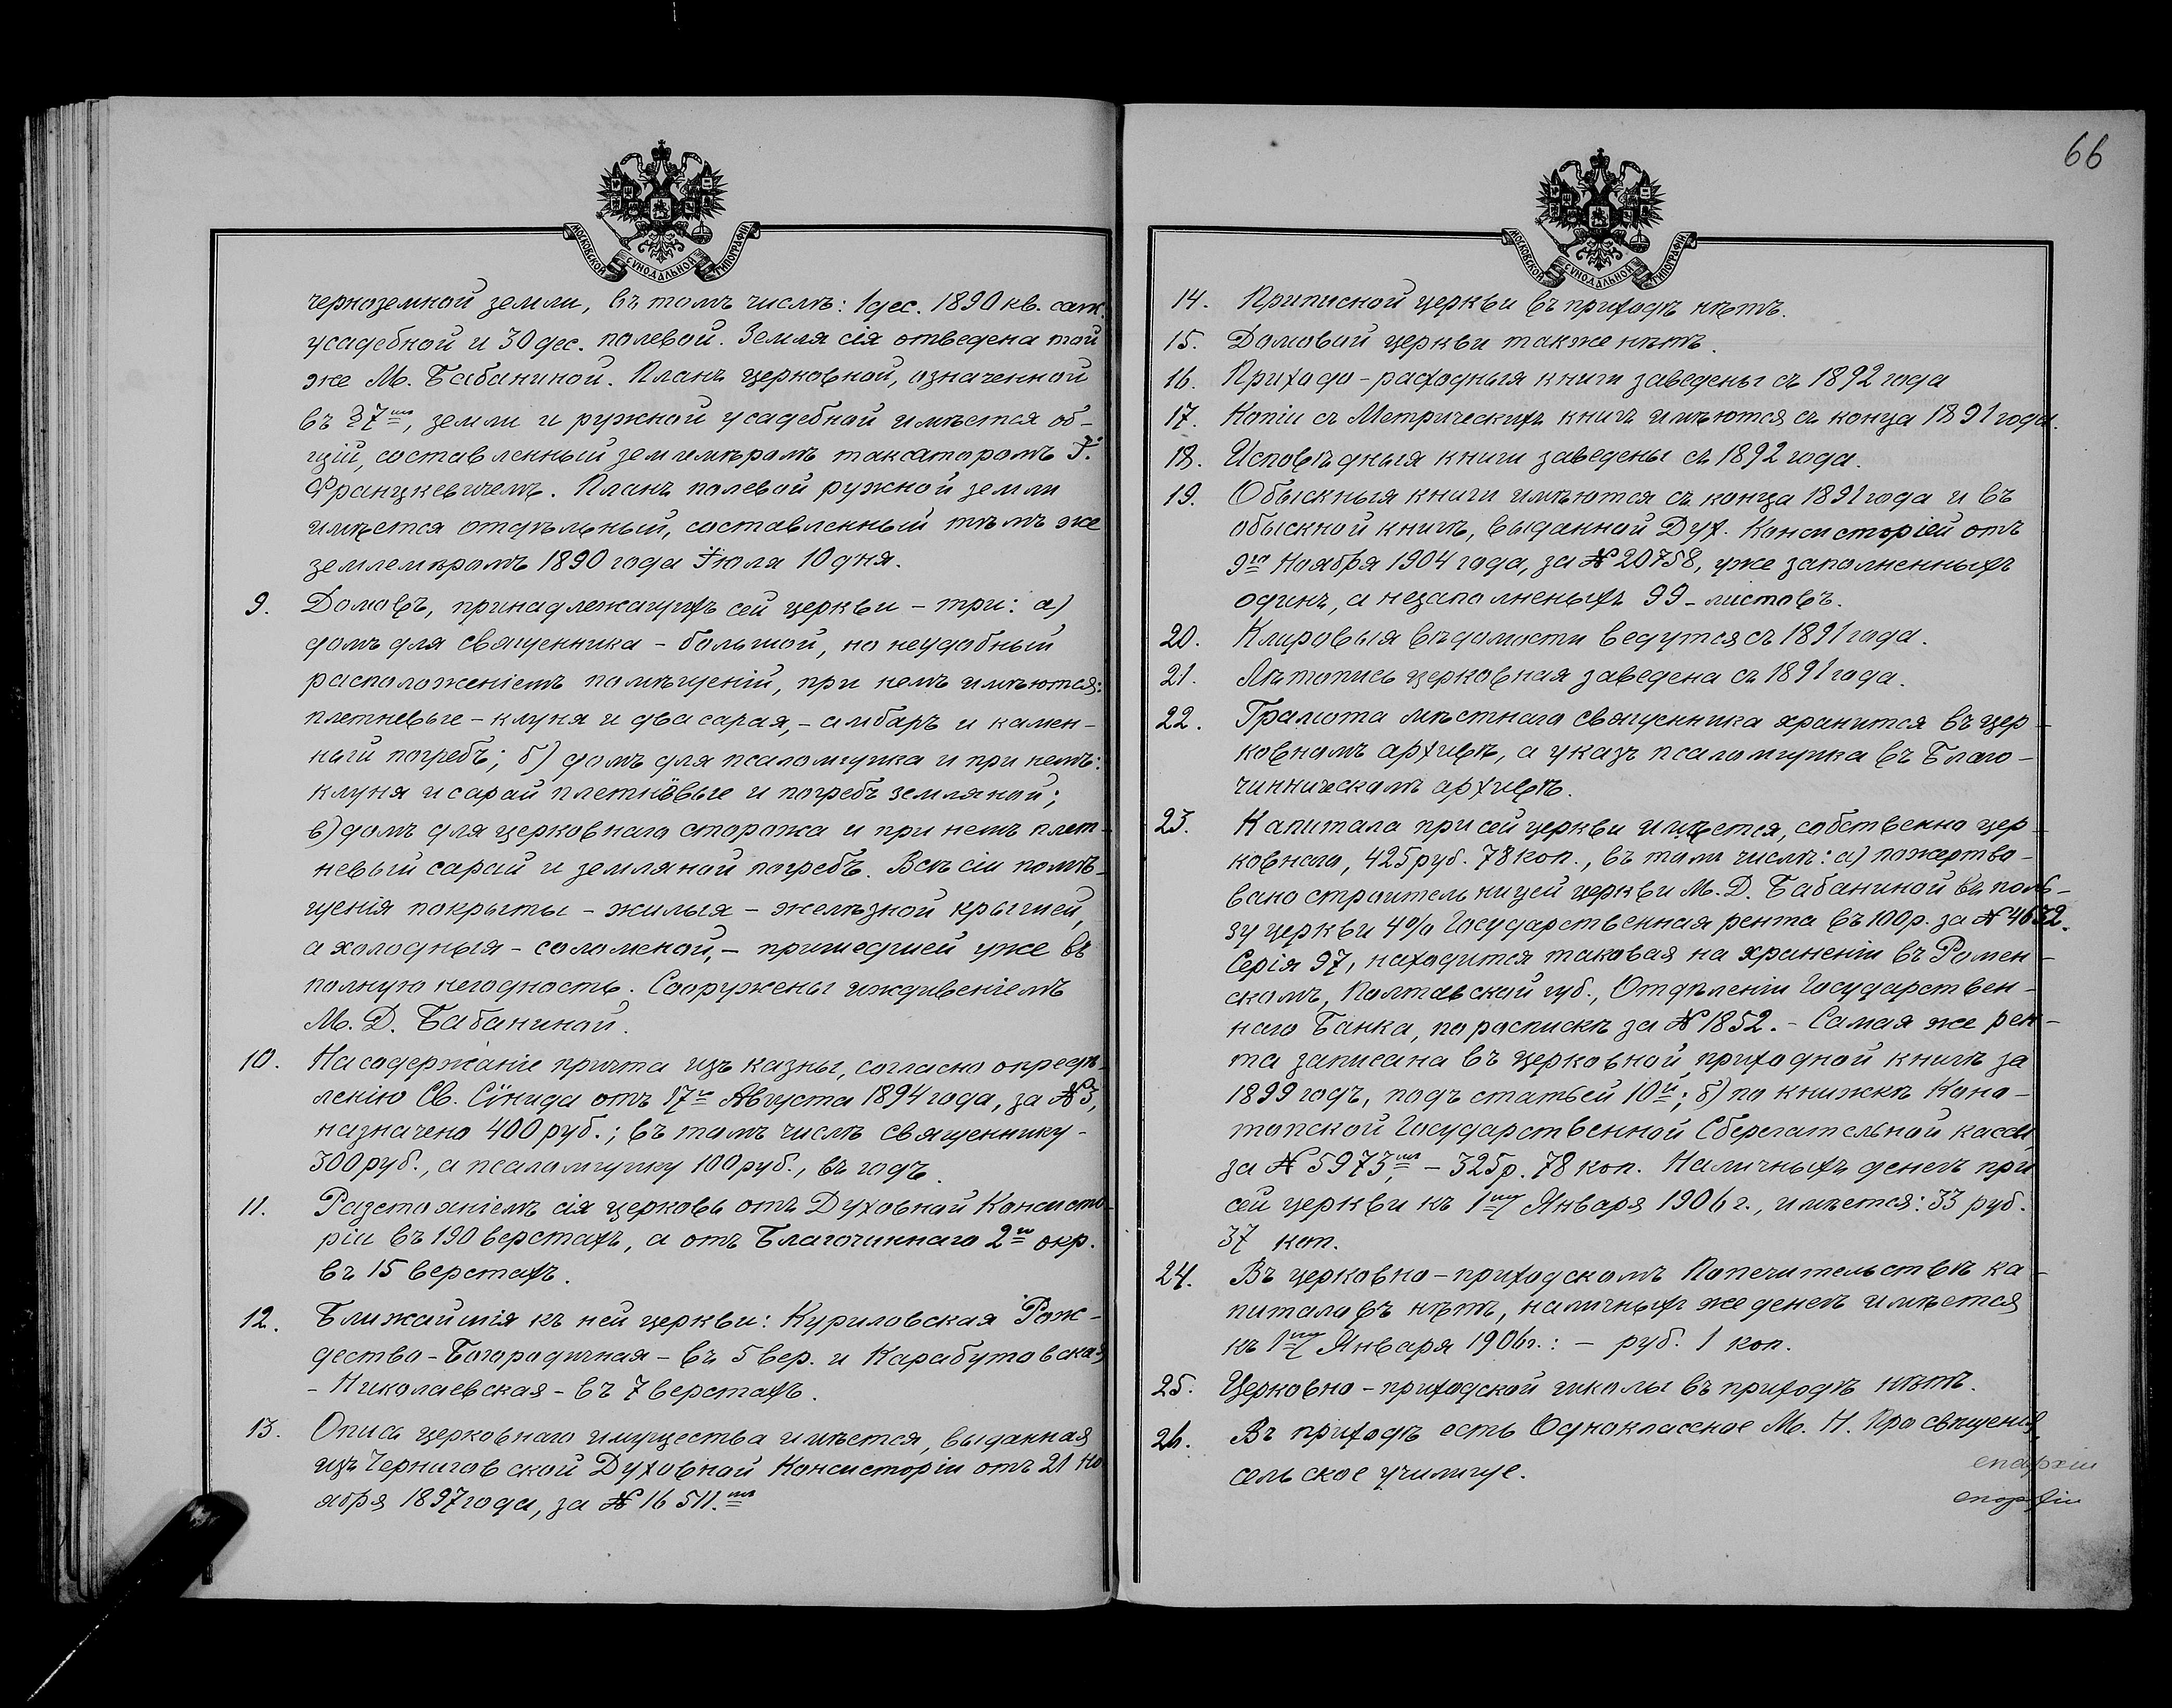 МОСКОВСКОЙ СѴНОДАЛЬНОЙ ТИПОГРАФІИ
черноземной земли, въ томъ числѣ: 1 дес. 1890 кв. саж.
усадебной и 30 дес. полевой. Земля сія отведена той
же М. Бабаниной. Планъ церковной, означенной
въ § 7ᵐ, земли и ружной усадебной имѣется об-
щій, составленный землемѣромъ таксаторомъ І.
Францкевичемъ. Планъ полевой ружной земли
имѣется отдѣльный, составленный тѣмъ же
землемѣромъ 1890 года Іюля 10 дня.
9. Домовъ, принадлежащихъ сей церкви – три: а)
домъ для священника – большой, но неудобный
расположеніемъ помѣщеній, при немъ имѣются:
плетневые – клуня и два сарая, – амбаръ и камен-
ный погребъ; б) домъ для псаломщика и при немъ:
клуня и сарай плетнёвые и погребъ земляной;
в) домъ для церковнаго сторожа и при немъ плет-
невый сарай и земляной погребъ. Всѣ сіи помѣ-
щенія покрыты – жилыя – желѣзной крышей,
а холодныя – соломеной, – пришедшей уже въ
полную негодность. Сооружены иждивеніемъ
М. Д. Бабаниной.
10. На содержаніе причта изъ казны, согласно опредѣ-
ленію Св. Сѵнида отъ 17ᵍᵒ Августа 1894 года, за № 3,
назначено 400 руб.; въ томъ числѣ священнику –
300 руб., а псаломщику 100 руб., въ годъ.
11. Разстояніемъ сія церковь отъ Духовной Консисто-
ріи въ 190 верстахъ, а отъ Благочиннаго 2ᵍᵒ окр.
въ 15 верстахъ.
12. Ближайшія къ ней церкви: Куриловская Рож-
дество-Богородичная – въ 5 вер. и Карабутовская
– Николаевская – въ 7 верстахъ.
13. Опись церковнаго имущества имѣется, выданная
изъ Черниговской Духовной Консисторіи отъ 21 Но
ября 1897 года, за № 16511.ᵐ
66
МОСКОВСКОЙ СѴНОДАЛЬНОЙ ТИПОГРАФІИ
14. Приписной церкви въ приходѣ нѣтъ.
15. Домовой церкви также нѣтъ.
16. Приходо-расходныя книги заведены съ 1892 года
17. Копіи съ Метрическихъ книгъ имѣются съ конца 1891 года.
18. Исповѣдныя книги заведены съ 1892 года.
19. Обыскныя книги имѣются съ конца 1891 года и въ
обыскной книгѣ, выданной Дух. Консисторіей отъ
9ᵍᵒ Ноября 1904 года, за № 20758, уже заполненныхъ
одинъ, а незаполненыхъ 99 – листовъ.
20. Клировыя вѣдомости ведутся съ 1891 года.
21. Лѣтопись церковная заведена съ 1891 года.
22. Грамота мѣстнаго священника хранится въ цер-
ковномъ архивѣ, а указъ псаломщика въ Благо-
чинническомъ архивѣ.
23. Капитала при сей церкви имѣется, собственно цер-
ковнаго, 425 руб. 78 коп., въ томъ числѣ: а) пожертво-
вано строительницей церкви М. Д. Бабаниной въ поль-
зу церкви 4% Государственная рента въ 100 р. за № 4632.
Серія 97, находится таковая на храненіи въ Ромен-
скомъ, Полтавской губ., Отдѣленіи Государствен-
наго Банка, по роспискѣ за № 1852. – Самая же рен-
та записана въ церковной приходной книгѣ за
1899 годъ, подъ статьей 10й; б) по книжкѣ Коно-
топской Государственной Сберегательной кассы
за № 5973,ᵐ – 325 р. 78 коп. Наличныхъ денегъ при
сей церкви къ 1ᵐʸ Января 1906 г., имѣется: 33 руб.
37 коп.
24. Въ церковно-приходскомъ Попечительствѣ ка-
питаловъ нѣтъ, наличныхъ же денегъ имѣется
къ 1ᵐʸ Января 1906 г.: – руб. 1 коп.
25. Церковно-приходской школы въ приходѣ нѣтъ.
26. Въ приходѣ есть Одноклассное М. Н. Просвѣщенія,
сельское училище.
епархіи
епархіи